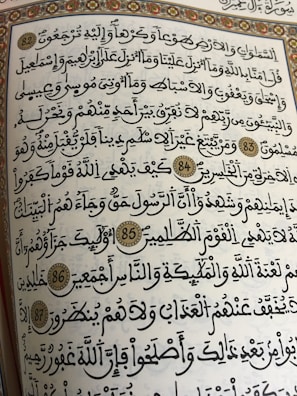 السموات والارض طوعا وكرها وإليه ترجعون 82
قل امنا بالله وما أنزل علينا وما أنزل على إبراهيم وإسماعيل
وإسحاق ويعقوب والاسباط وما أوتي موسى وعيسى
والنبيئون من ربهم لا نفرق بين أحد منهم ونحن له
مسلمون 83 ومن يبتغ غير الاسلام دينا فلن يقبل منه وهو
الاخرة من الخاسرين 84 كيف يهدي الله قوما كفروا
إيمانهم وشهدوا أن الرسول حق وجاءهم البينات
لا يهدي القوم الظالمين 85 أولئك جزاؤهم أن
لعنة الله والملائكة والناس أجمعين 86 خالدين
لا يخفف عنهم العذاب ولا هم ينظرون 87 إلا
من بعد ذالك وأصلحوا فإن الله غفور رحيم